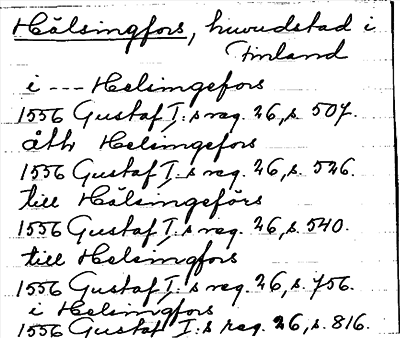 Hälsingfors, huvudstad i
Finland
i --- Helsingefors
1556 Gustaf I:s reg. 26, s. 507.
åth Helsingefors
1556 Gustaf I:s reg. 26, s. 526.
till Hälsingeförs
1556 Gustaf I:s reg. 26, s. 540.
till Helsingfors
1556 Gustaf I:s reg. 26, s. 756.
i Helsingfors
1556 Gustaf I:s reg. 26, s. 816.